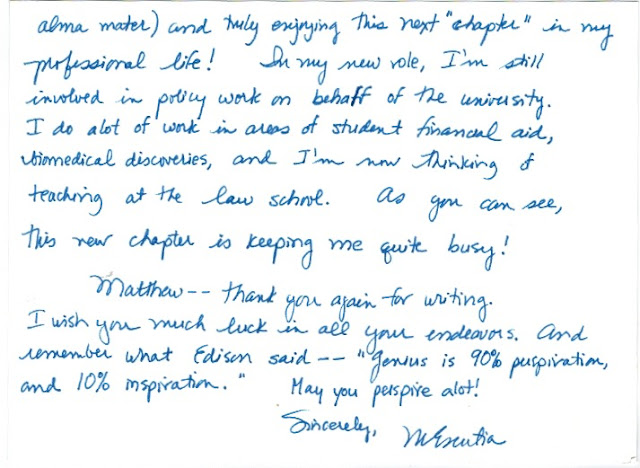 alma mater) and truly enjoying this next "chapter" in my
professional life! In my new role, I'm still
involved in policy work on behalf of the university.
I do alot of work in areas of student financial aid,
biomedical discoveries, and I'm now thinking of
teaching at the law school. As you can see,
this new chapter is keeping me quite busy!
Matthew -- thank you again for writing.
I wish you much luck in all your endeavors. And
remember what Edison said -- "Genius is 90% perspiration,
and 10% inspiration." May you perspire alot!
Sincerely, MEscutia